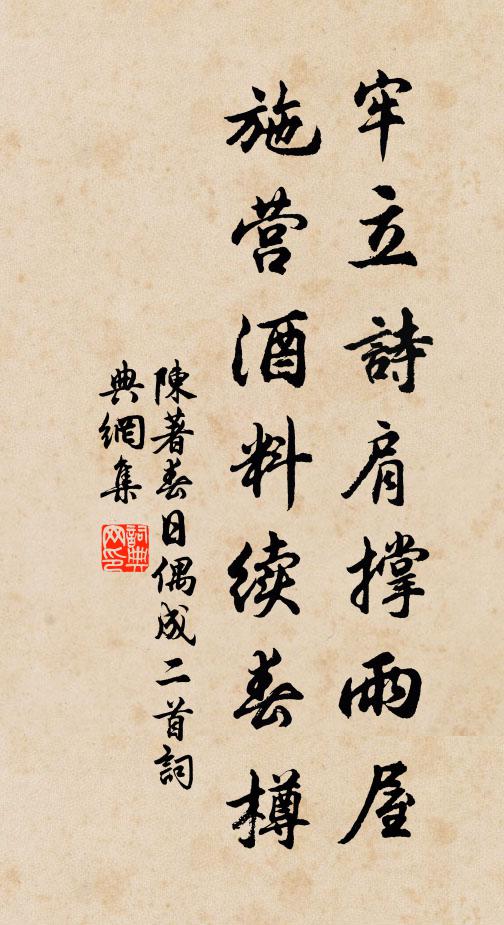 牢立詩肩撑雨屋
施营酒料续春樽
陳著春日偶成二首詞
典網集
詞典
网印